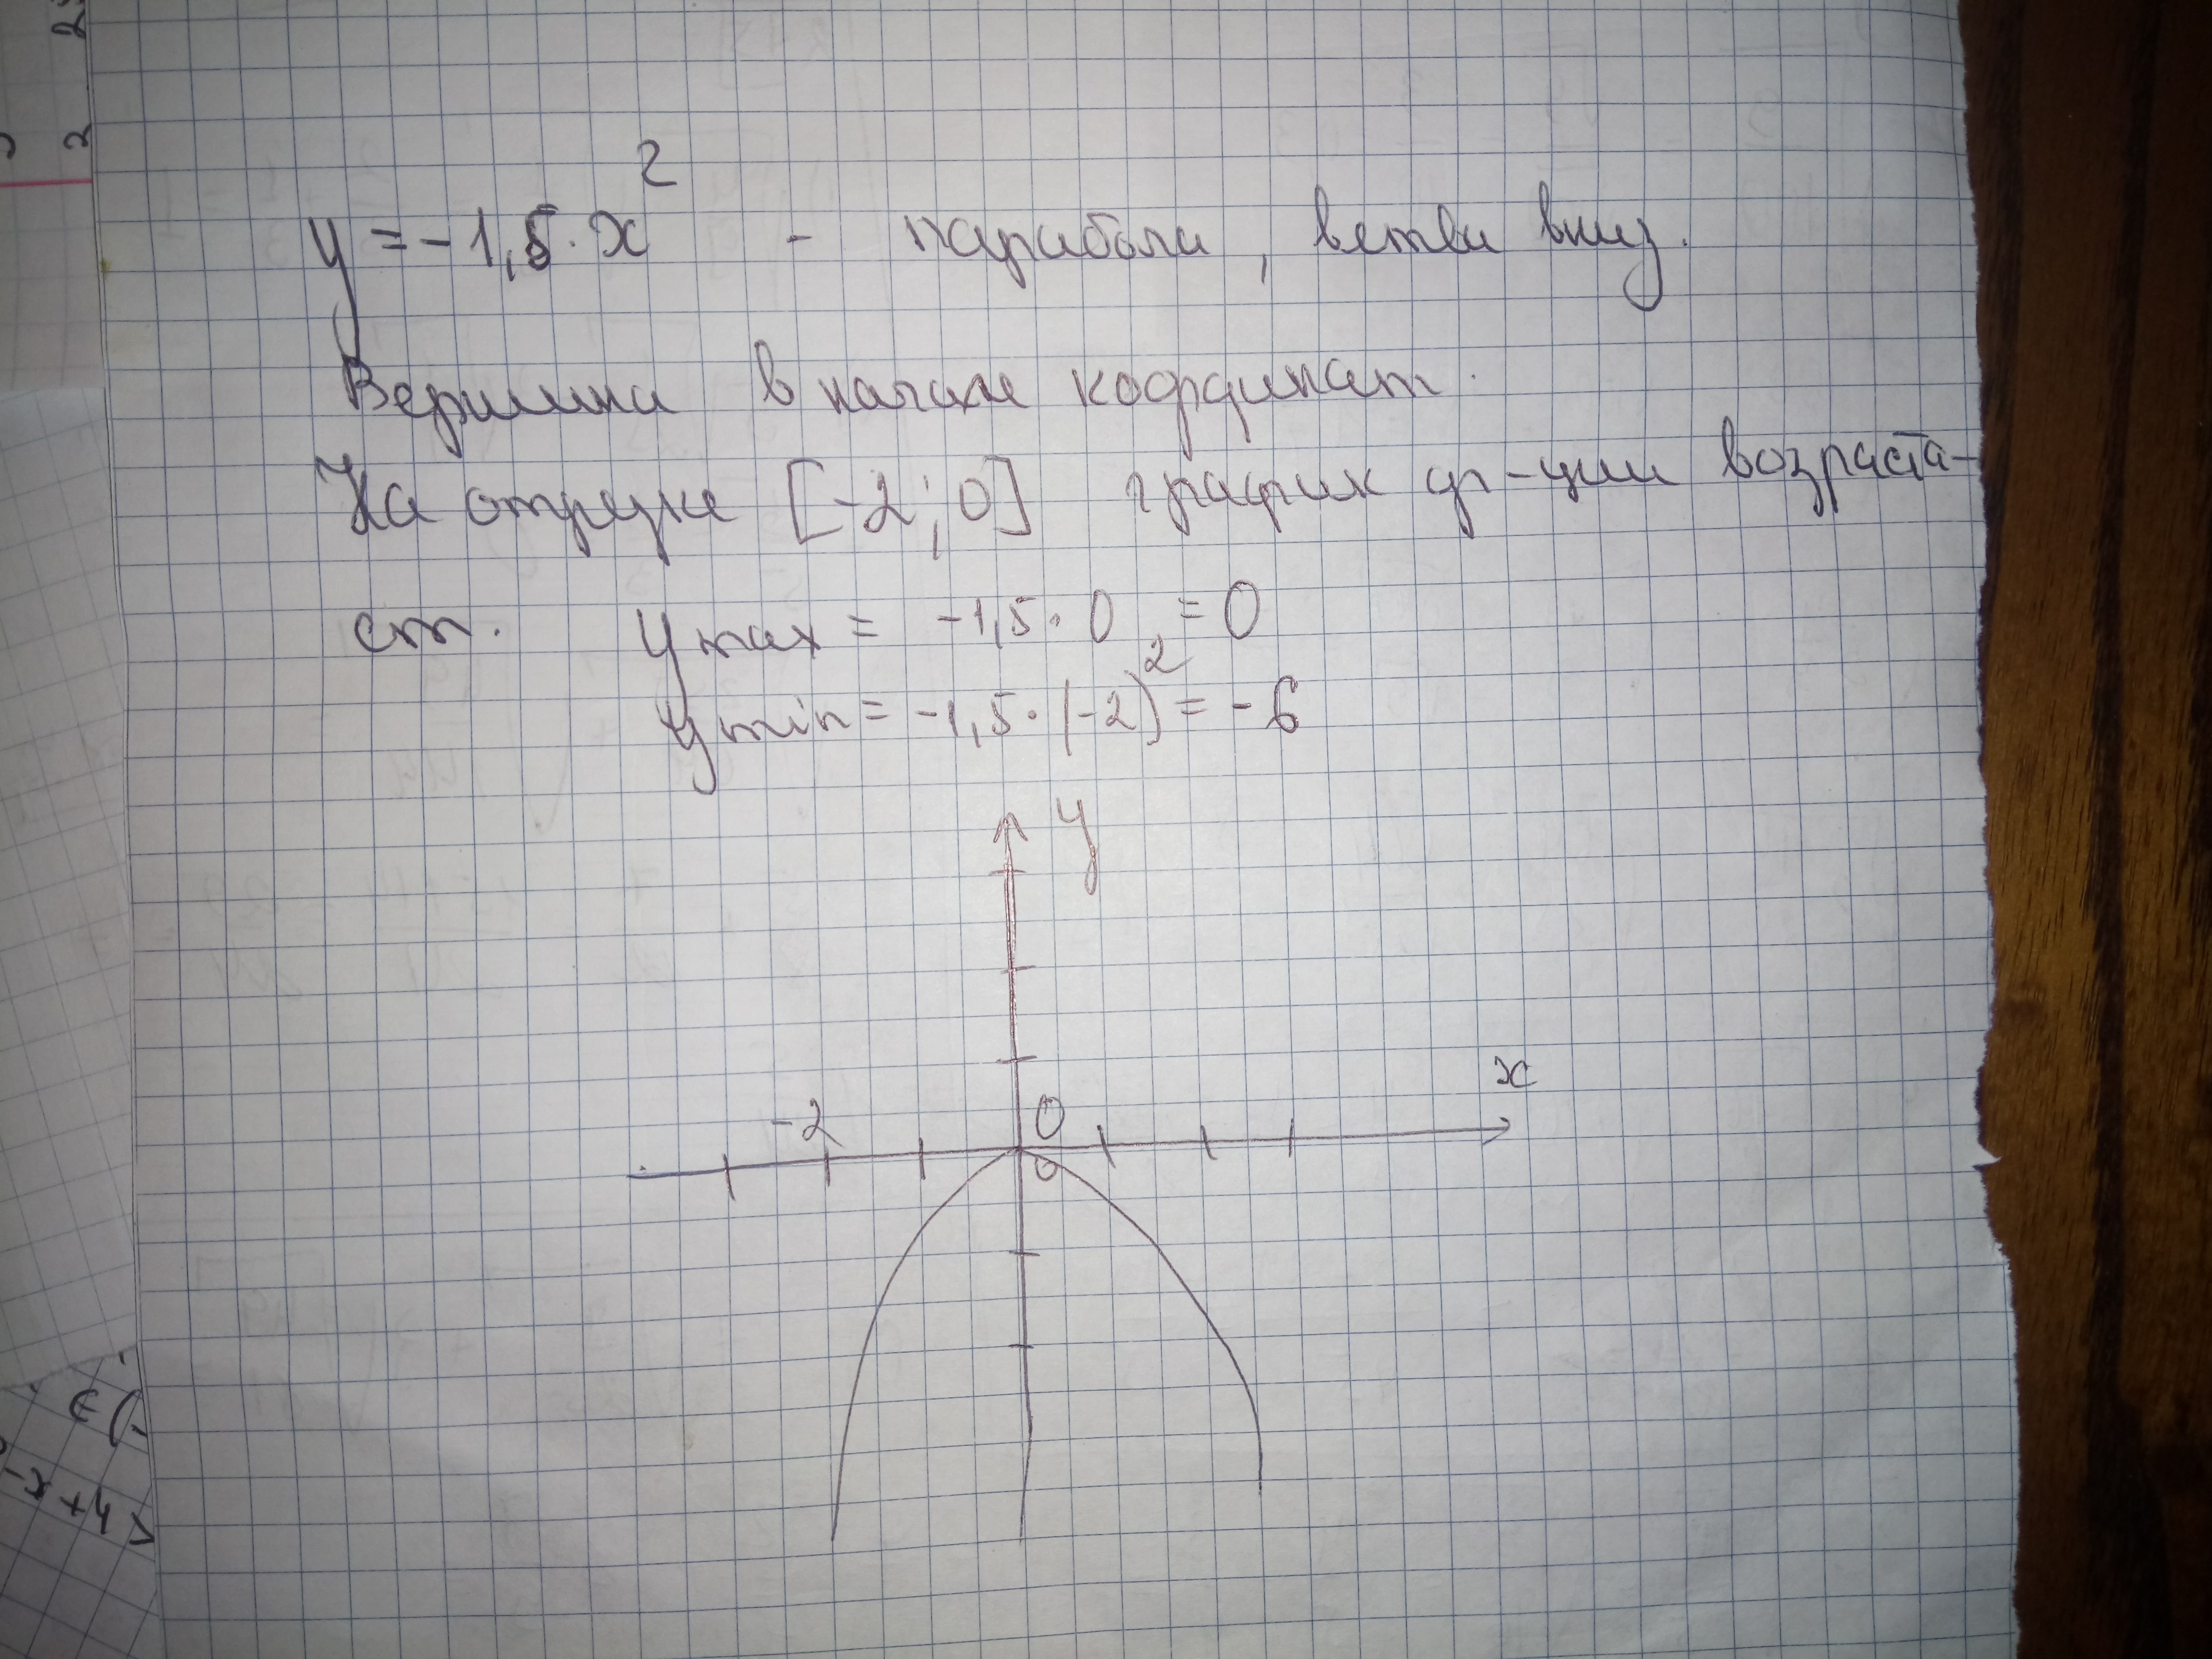 y = -1,5·x² - парабола, ветви вниз.
Вершина в начале кординат.
На отрезке [-2; 0] график ф-ции возраста-
ет.
y max = -1,5·0² = 0
y min = -1,5·(-2)² = -6
y
-2
0
x